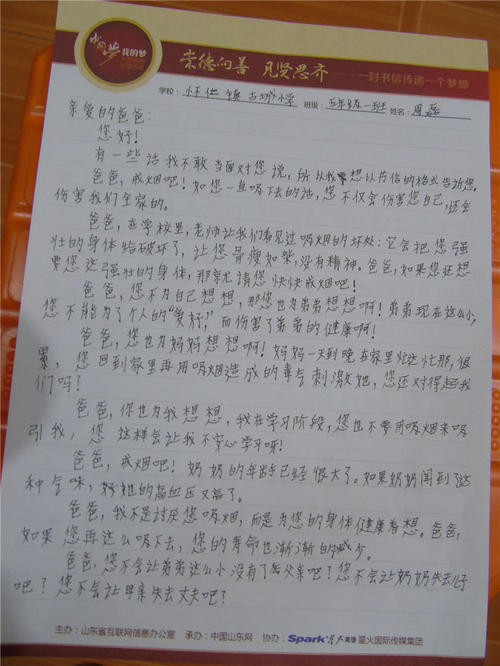 中国梦 我的梦
崇德向善 见贤思齐
一封书信传递一个梦想
学校: 小学 班级: 五年级一班 姓名: 周磊
亲爱的爸爸:
您好!
有一些话我不敢当面对您说,所以我想以书信的格式告诉您。
爸爸,戒烟吧!如您一直吸下去的话,您不仅会伤害您自己,还会
伤害我们全家的。
爸爸,在学校里,老师让我们看见过吸烟的坏处:它会把您强
壮的身体给破坏了,让您骨瘦如柴,没有精神。爸爸,如果您还想
要您这强壮的身体,那就请您快快戒烟吧!
爸爸,您不为自己想想,那您也为弟弟想想啊!弟弟现在这么小,
您不能为了个人的“爱好”,而伤害了弟弟的健康啊!
爸爸,您也为妈妈想想啊!妈妈一天到晚在家里忙这忙那,很
累,您回到家里再用吸烟造成的毒气刺激她,您还对得起我
们吗?
爸爸,你也为我想想,我在学习阶段,您也不要用吸烟来吸
引我,您这样会让我不安心学习呀!
爸爸,戒烟吧!奶奶的年龄已经很大了。如果奶奶闻到了这
种气味,奶奶的高血压又高了。
爸爸,我不是讨厌您吸烟,而是为您的身体健康着想。爸爸,
如果您再这么吸下去,您的寿命也渐渐的减少。
爸爸,您不会让弟弟这么小没有了父亲吧?您不会让奶奶失去儿子
吧?您不会让母亲失去丈夫吧?
主办:山东省互联网信息办公室 承办:中国山东网 协办:Spark 星火英语 星火国际传媒集团